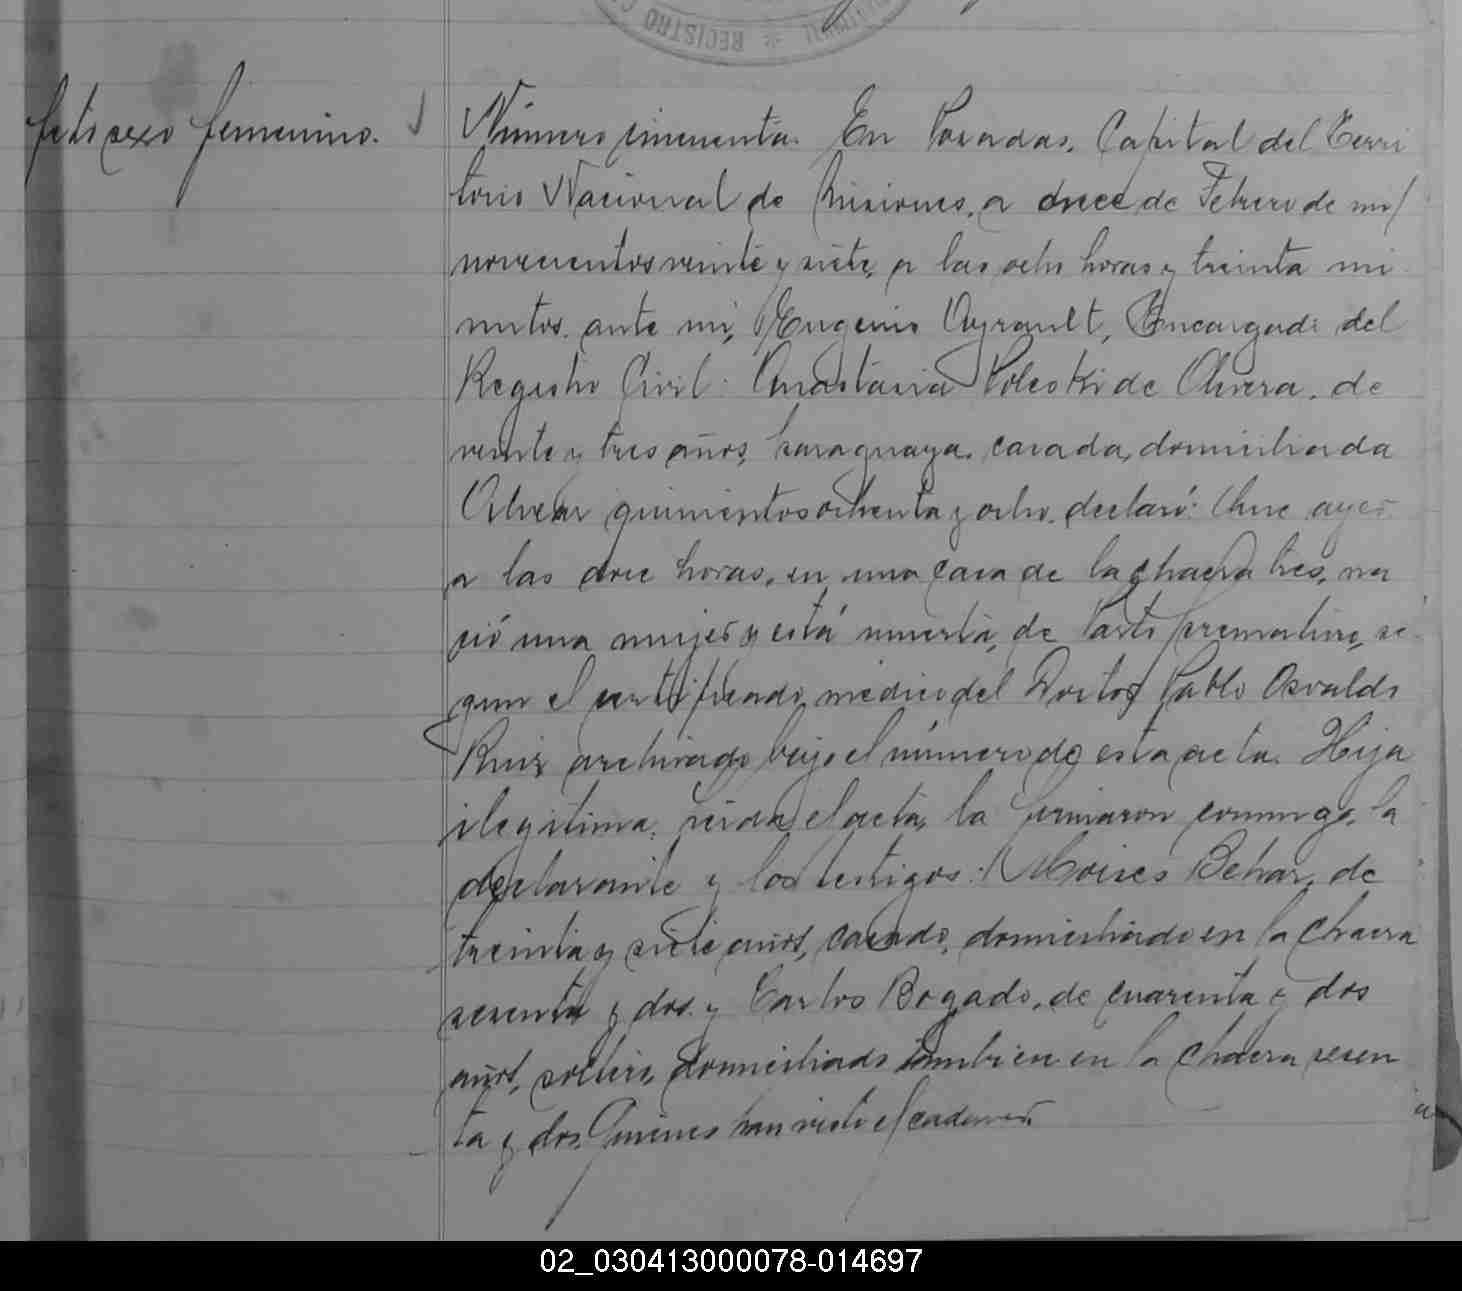 REGISTRO C
feto sexo femenino.
Número cincuenta. En Posadas, Capital del Terri
torio Nacional de Misiones, a doce de Febrero de mil
novecientos veinte y siete, a las ocho horas y treinta mi
nutos, ante mi, Eugenio Ayrault, Encargado del
Registro Civil: Anastasia Poleski de Olivera, de
veinte y tres años, paraguaya, casada, domiciliada
Alvear quinientos ochenta y ocho, declaró: Que ayer
a las doce horas, en una casa de la chacra tres, na
ció una mujer y está muerta, de Parto prematuro, se
gun el certificado médico del Doctor Pablo Osvaldo
Ruiz archivado bajo el número de esta acta. Hija
ilegitima. Leida el acta, la firmaron conmigo, la
declarante y los testigos: Moises Behar, de
treinta y siete años, casado, domiciliado en la chacra
sesenta y dos y Carlos Bogado, de cuarenta y dos
años, soltero, domiciliado tambien en la chacra sesen
ta y dos. Quienes han visto el cadaver.
02_030413000078-014697